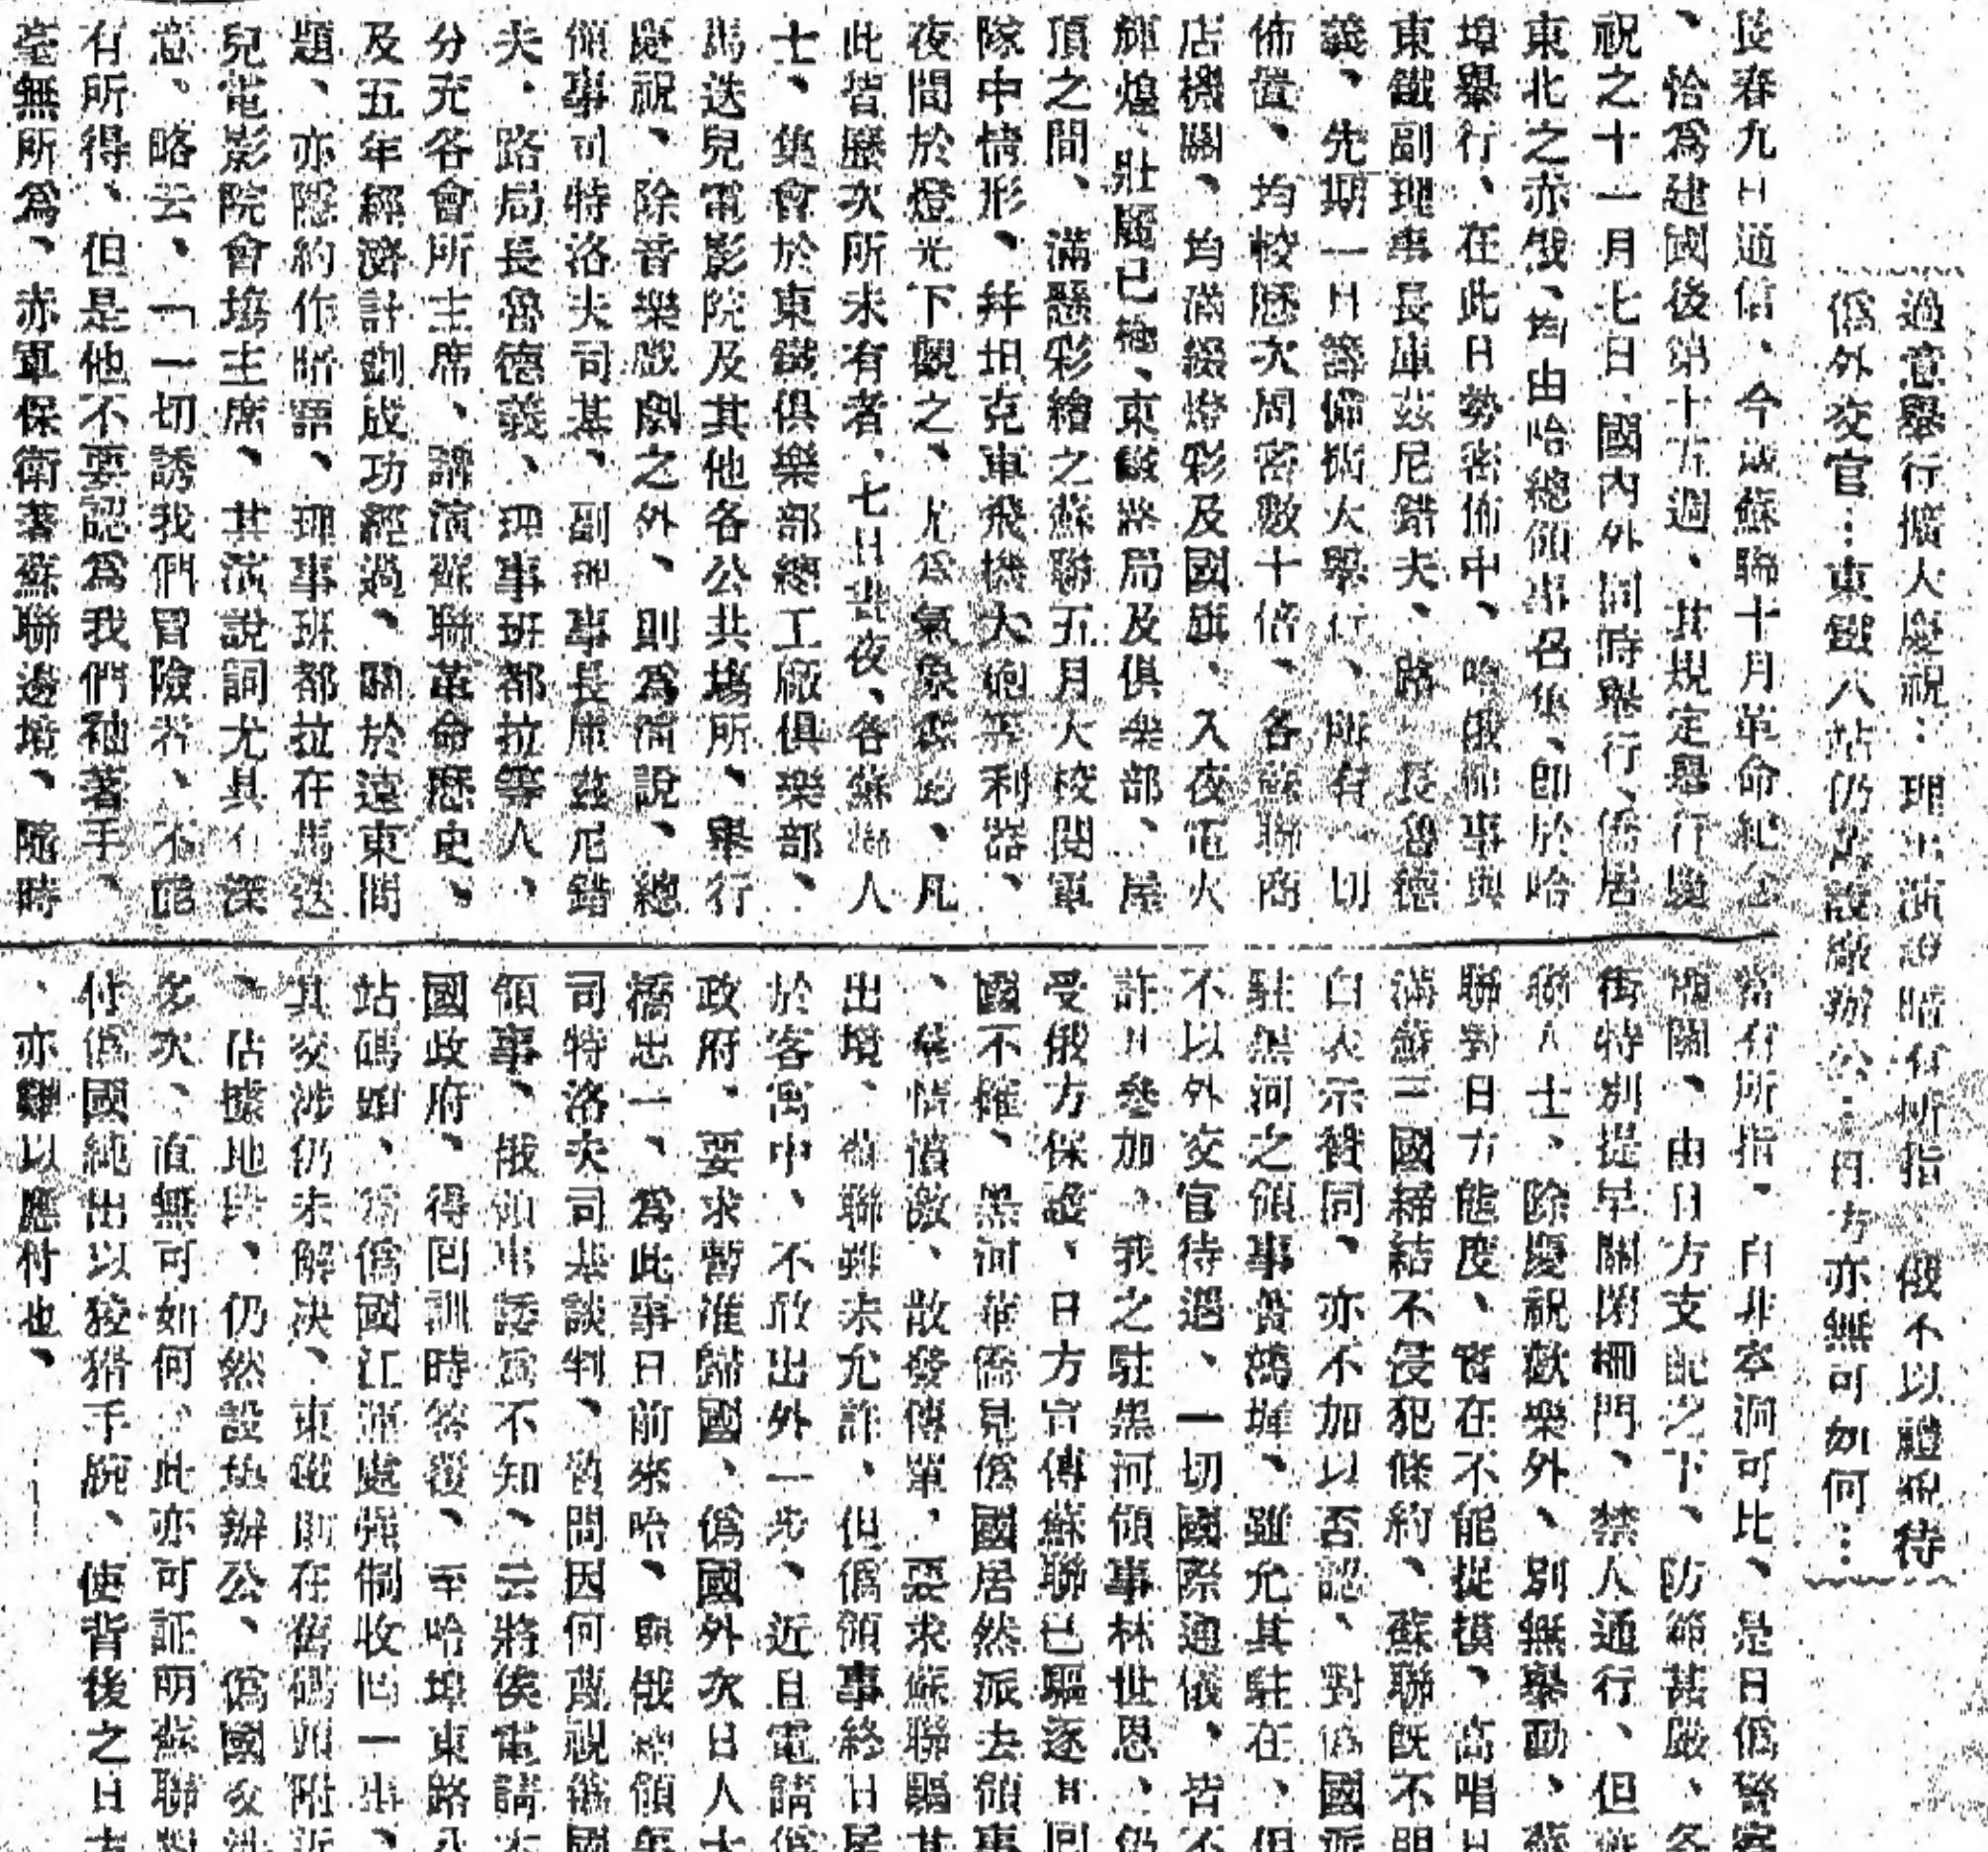 過意舉行擴大慶祝：理事演說暗有所指　俄不以禮貌待
偽外交官：東鐵八站仍舊設廠辦公：日方亦無可如何：
長春九日通信、今歲蘇聯十月革命紀念
、恰爲建國後第十五週、其規定舉行慶
祝之十一月七日、國內外同時舉行、僑居
東北之赤俄、均由哈總領事召集、卽於哈
埠舉行、在此日勢密佈中、哈俄領事與
東鐵副理事長庫茲尼錯夫、路局長魯德
義、先期一日籌備術大舉行、所有一切
佈置、均較歷次周密數十倍、各蘇聯商
店機關、均滿綴燈彩及國旗、入夜電火
輝煌、壯麗已極、東鐵路局及俱樂部、屋
頂之間、滿懸彩繪之蘇聯五月大校閱軍
隊中情形、幷坦克車飛機大砲等利器、
夜間於燈光下觀之、尤爲氣象、凡
此皆歷次所未有者、七日晝夜、各蘇聯人
士、集會於東鐵俱樂部總工廠俱樂部、
馬迭兒電影院及其他各公共場所、舉行
慶祝、除音樂戲劇之外、則爲演說、總
領事司特洛夫司基、副理事長庫茲尼錯
夫、路局長魯德義、理事班都拉等人、
分充各會所主席、講演蘇聯革命歷史、
及五年經濟計劃成功經過、關於遠東問
題、亦隱約作暗語、理事班都拉在馬迭
兒電影院會塲主席、其演說詞尤具有深
意、略云、「一切誘我們冒險者、不能
有所得、但是他不要認爲我們袖著手、
毫無所爲、赤軍保衛著蘇聯邊境、隨時
當有所指、自非空洞可比、是日偽警察
機關、由日方支配之下、防範甚嚴、各
街特別提早關閉柵門、禁人通行、但蘇
聯人士、除慶祝歡樂外、別無舉動、蘇
聯對日方態度、實在不能捉摸、高唱日
滿蘇三國締結不侵犯條約、蘇聯旣不明
白表示贊同、亦不加以否認、對偽國派
駐黑河之領事、雖允其駐在、但
不以外交官待遇、一切國際通儀、皆不
許其參加、我之駐黑河領事林世恩、仍
受俄方保護、日方宣傳蘇聯已驅逐其回
國不確、黑河華僑見偽國居然派去領事
、羣情憤激、散發傳單、要求蘇聯驅其
出境、蘇聯雖未允許、但偽領事終日居
於客寓中、不敢出外一步、近且電請偽
政府、要求暫准歸國、偽國外次日人大
橋忠一、爲此事日前來哈、與俄總領事
司特洛夫司基談判、詢問因何蔑視偽國
領事、俄領事諉爲不知、云將俟電請本
國政府、得囘訓時答覆、至哈埠東路八
站碼頭、爲偽國江運處强制收囘一事、
其交涉仍未解决、東鐵則在舊碼頭附近
、佔據地段、仍然設處辦公、偽國交涉
多次、直無可如何、此亦可証明蘇聯對
付偽國純出以狡猾手腕、使背後之日方
、亦難以應付也、